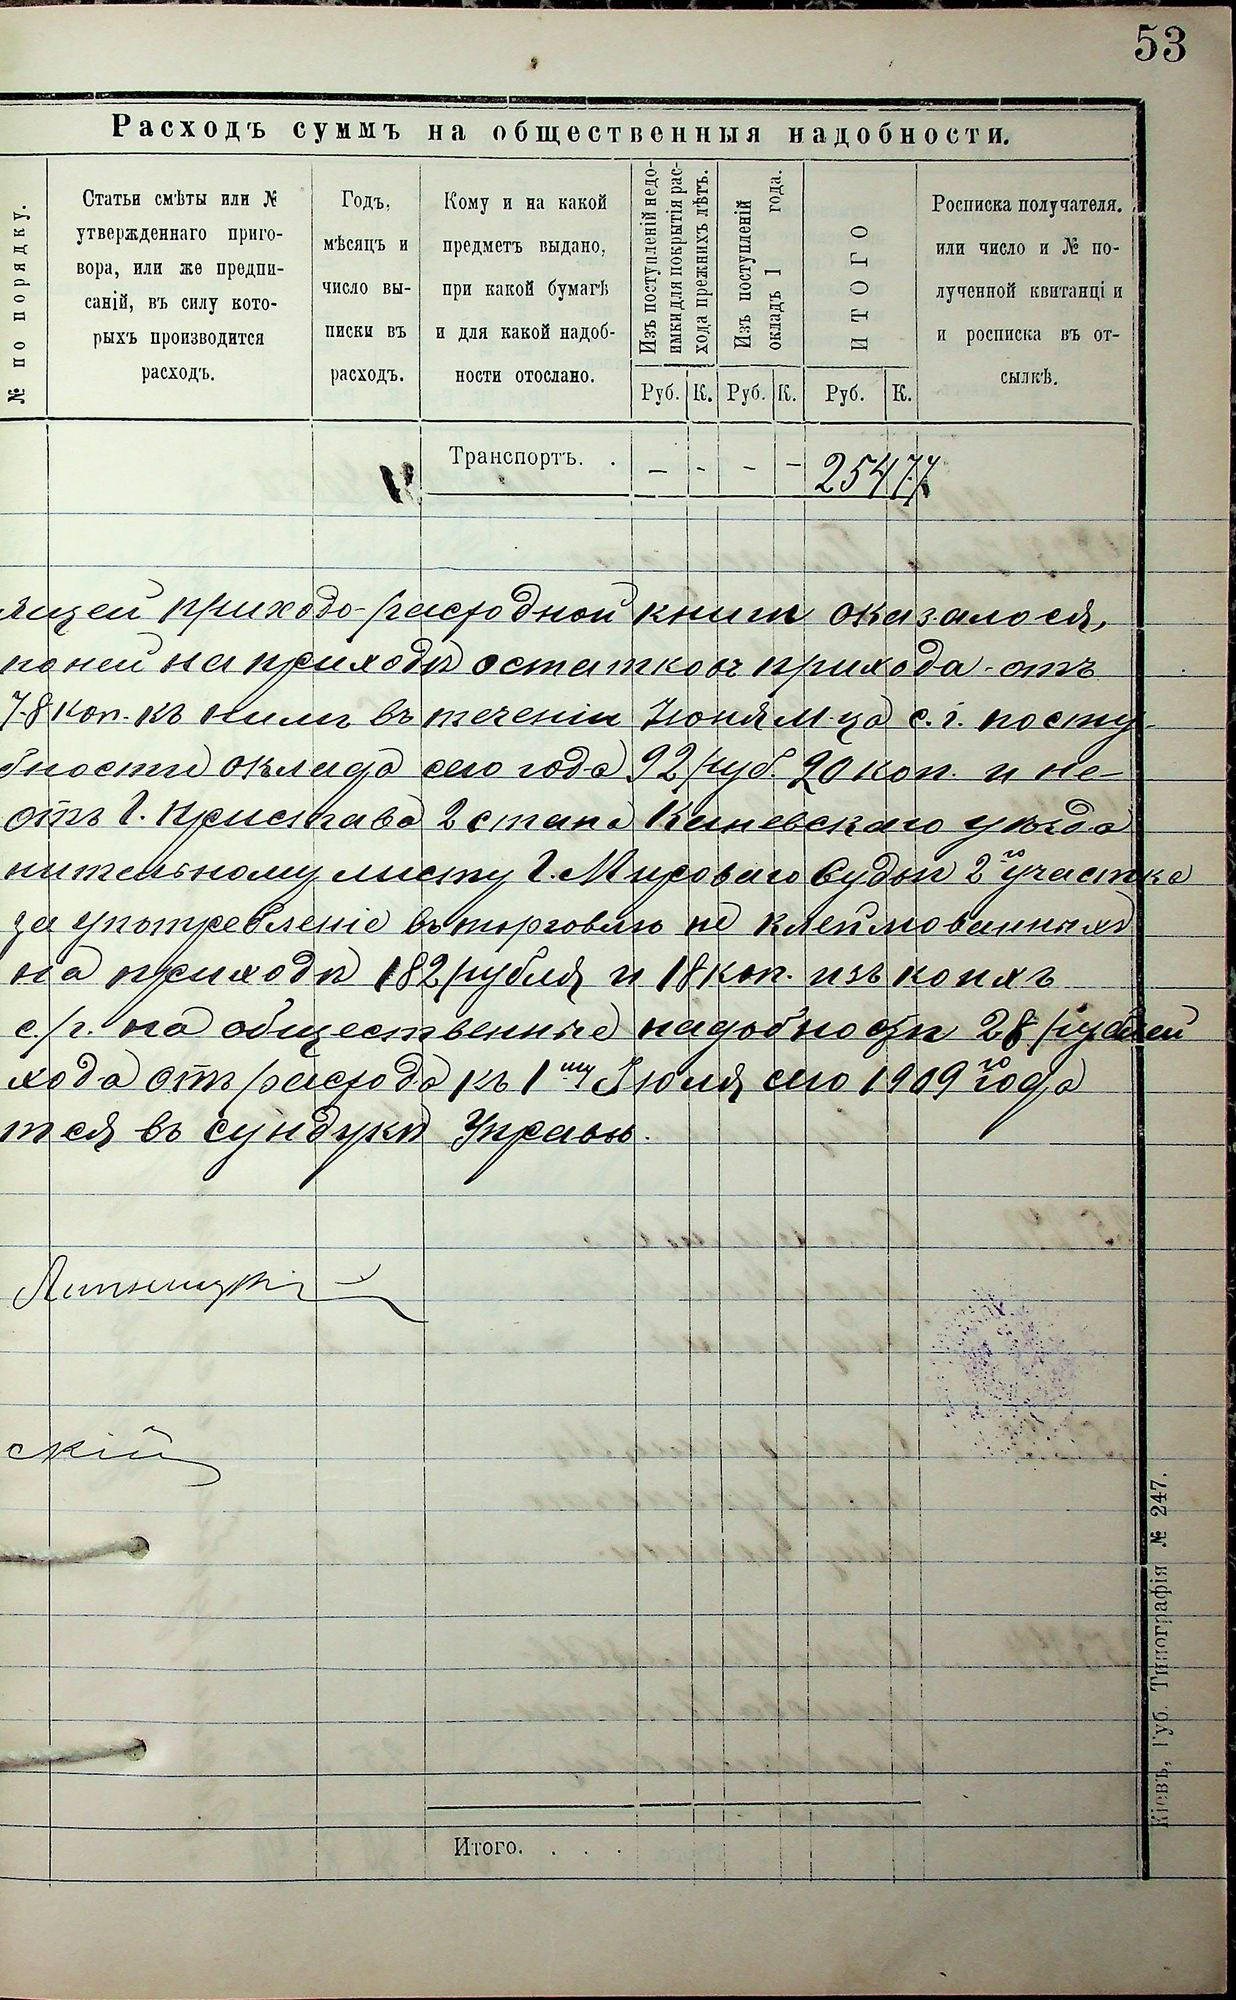 53
Расходъ суммъ на общественныя надобности.
№ по порядку.
Статьи смѣты или №
утвержденнаго приго-
вора, или же предпи-
саній, въ силу кото-
рыхъ производится
расходъ.
Годъ,
мѣсяцъ и
число вы-
писки въ
расходъ.
Кому и на какой
предметъ выдано,
при какой бумагѣ
и для какой надоб-
ности отослано.
Изъ поступленій недо-
имки для покрытія рас-
хода прежнихъ лѣтъ.
Изъ поступленій
окладъ 1 года.
ИТОГО
Росписка получателя,
или число и № по-
лученной квитанціи
и росписка въ от-
сылкѣ.
Руб. К. Руб. К. Руб. К.
Транспортъ. . – - – – 254 77
ящей приходо-расходной книги оказалося,
по ней на приходѣ остатковъ прихода отъ
78 коп. къ нимъ въ теченіи Іюня м-ца с.г. посту-
бности оклада сего года 92 руб. 20 коп. и не-
отъ Г. Пристава 2 стана Каневскаго уѣзда
нительному листу Г. Мироваго Судьи 2го участка
за употребленіе въ торговлѣ не клеймованныхъ
на приходѣ 182 рубля и 18 коп. изъ коихъ
с/г. на общественные надобности 28 рублей
хода отъ расхода къ 1му Іюля сего 1909го года
тся въ сундукѣ Управы.
скій
Итого. . . .
Кіевъ, Губ. Типографія № 247.